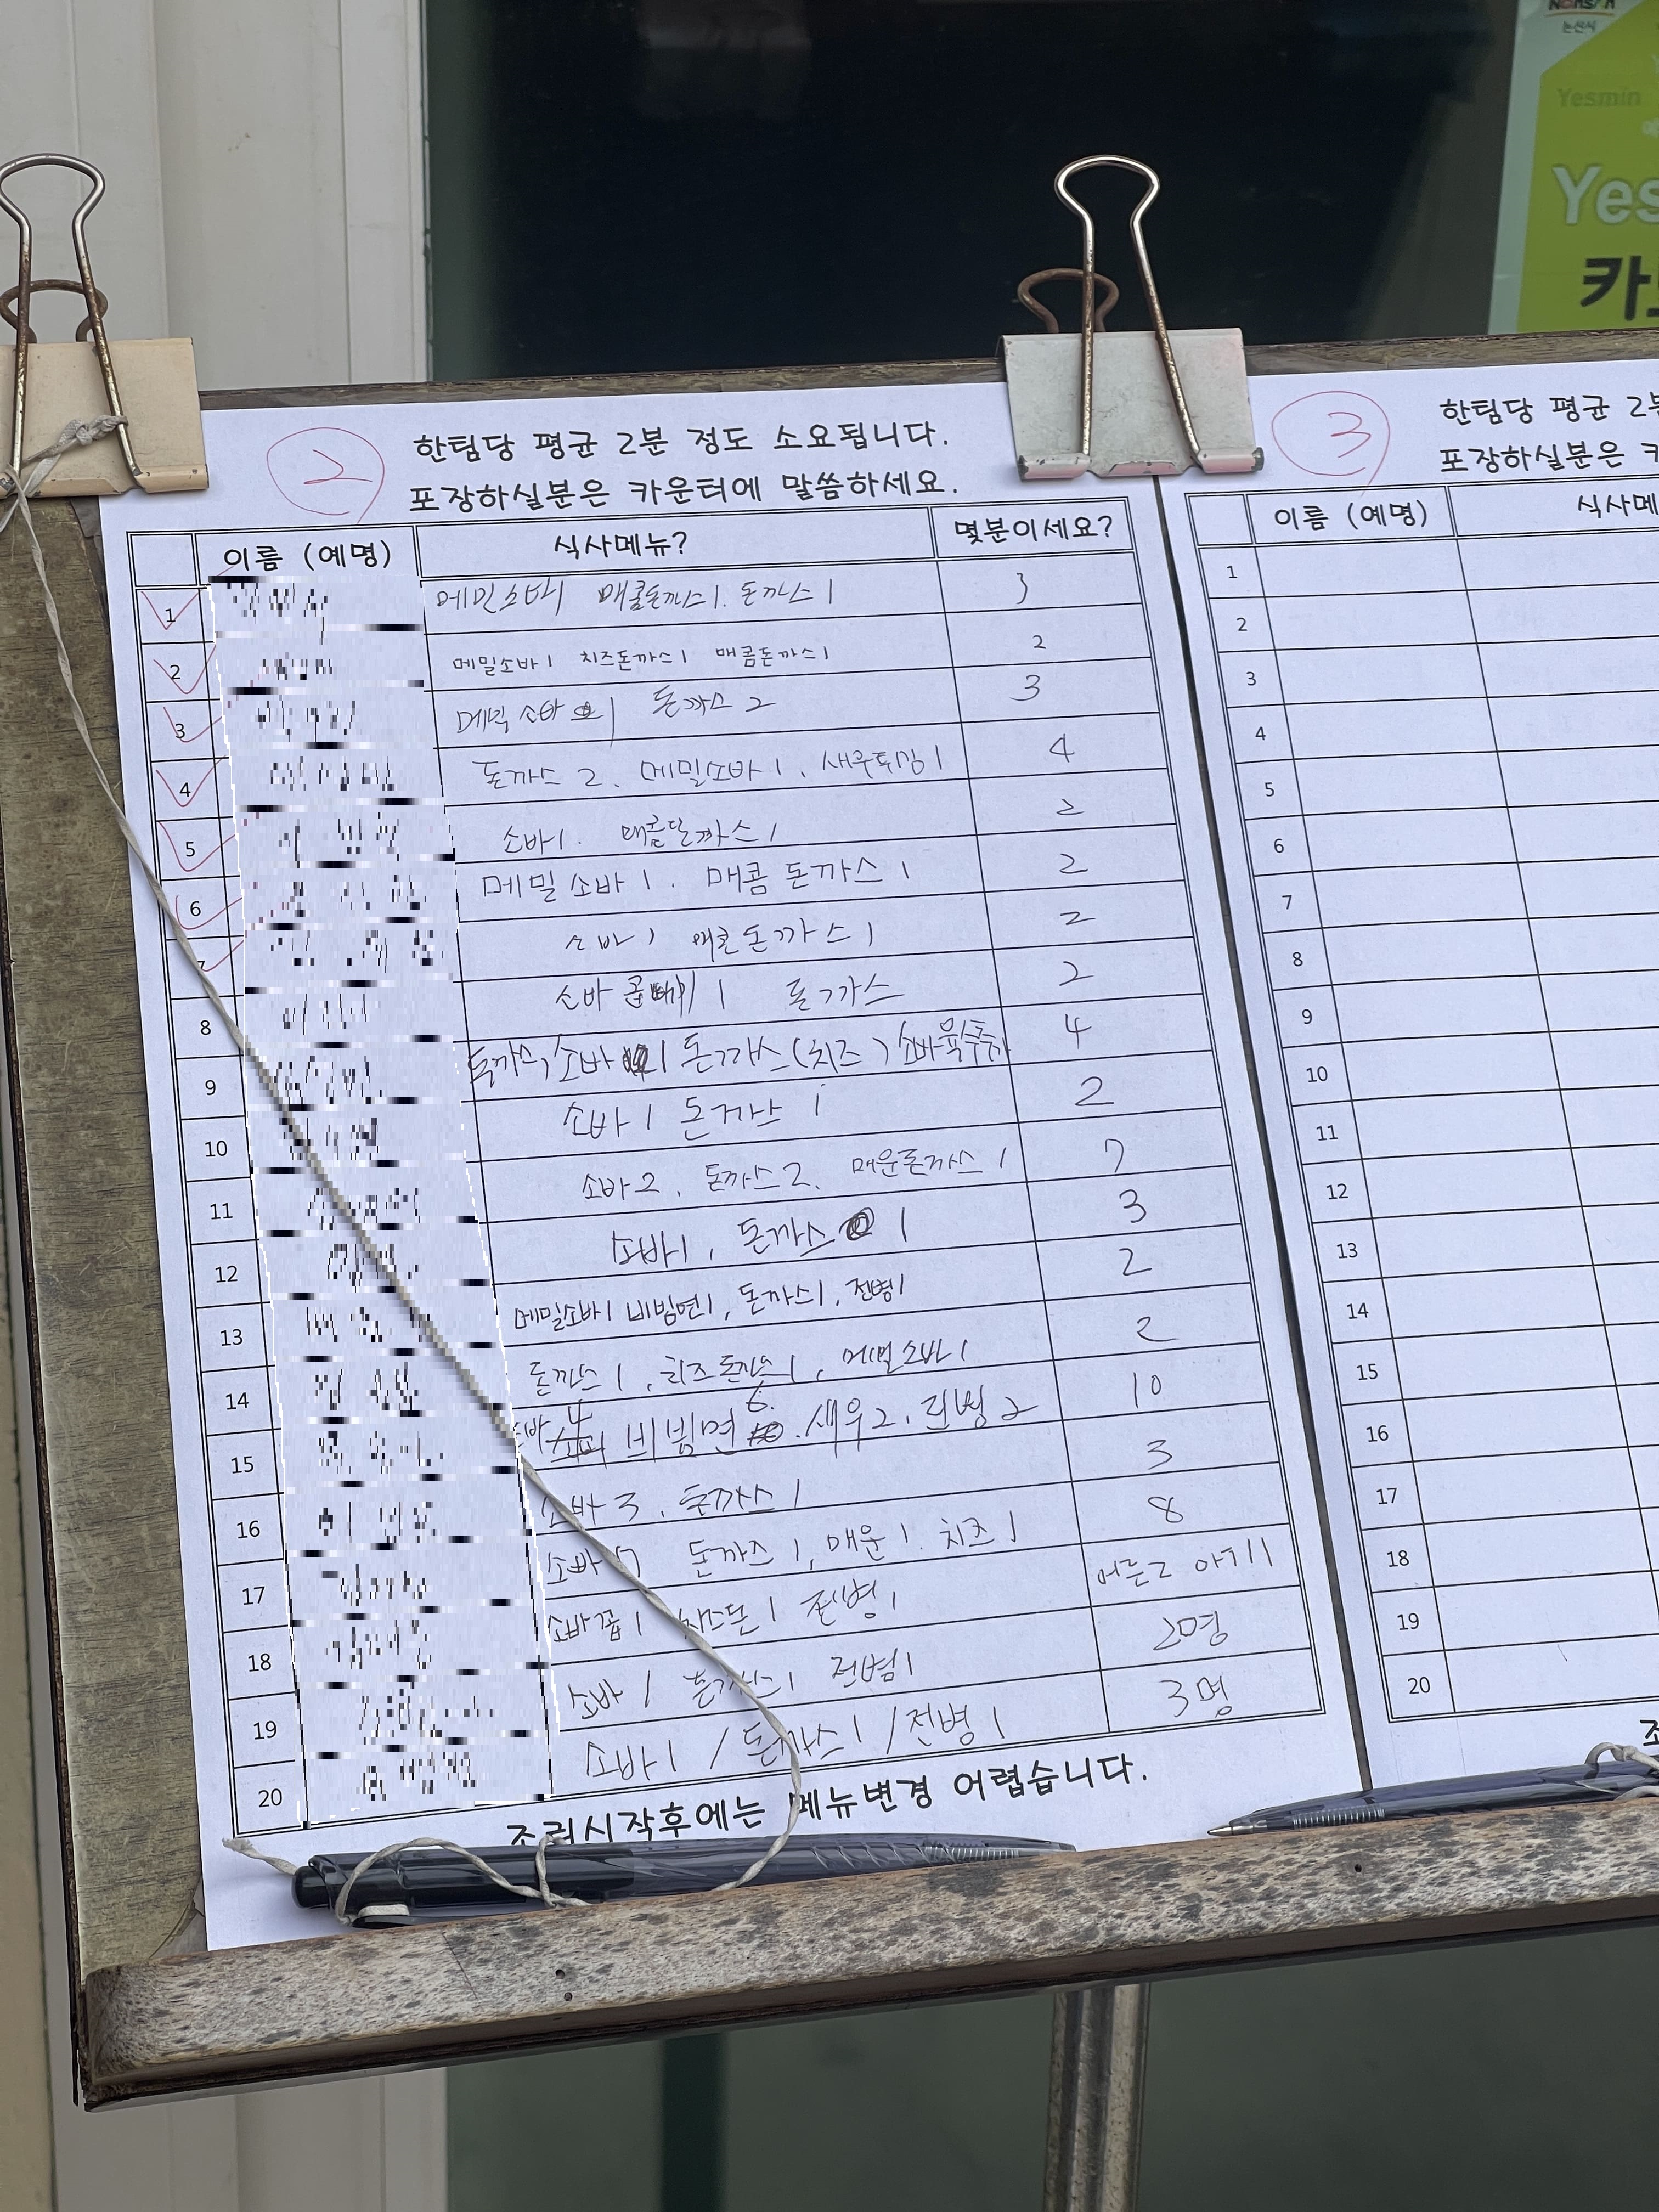 NONSAN
논산시
Yesmin
Yes
카
② 한팀당 평균 2분 정도 소요됩니다.
포장하실분은 카운터에 말씀하세요.
이름 (예명) 식사메뉴? 몇분이세요?
1 메밀소바1 매콤돈까스1. 돈까스1 3
2 메밀소바1 치즈돈까스1 매콤돈까스1 2
3 메밀소바 1 돈까스 2 3
4 돈까스 2. 메밀소바1. 새우튀김1 4
5 소바1. 매콤돈까스1 2
6 메밀소바1. 매콤돈까스1 2
7 소바1 매콤돈까스1 2
8 소바 곱빼기 1 돈까스 2
9 돈까스, 소바 1 돈까스(치즈) 소바육수추가 4
10 소바1 돈까스 1 2
11 소바2. 돈까스2. 매운돈까스1 7
12 소바1, 돈까스 1 3
13 메밀소바1 비빔면1, 돈까스1. 전병1 2
14 돈까스1, 치즈돈까스1, 메밀소바1 2
15 소바 4 비빔면 6. 새우2. 전병2 10
16 소바3. 돈까스1 3
17 소바 돈까스1, 매운1. 치즈1 8
18 소바곱1 치즈돈1 전병1 어른2 아기1
19 소바1 돈까스1 전병1 2명
20 소바1 / 돈까스1 / 전병1 3명
조리시작후에는 메뉴변경 어렵습니다.
③ 한팀당 평균 2분
포장하실분은 카
이름 (예명) 식사메
1
2
3
4
5
6
7
8
9
10
11
12
13
14
15
16
17
18
19
20
조